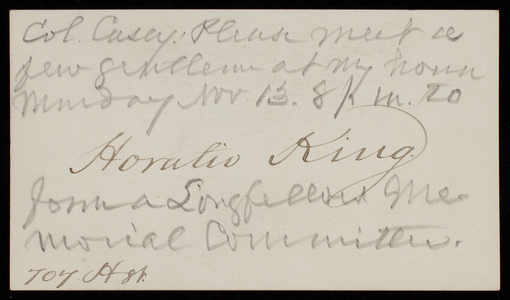 Col. Casey: Please meet a
few gentlemen at my house
Monday Nov 13. 8 p m. to
Horatio King
form a Longfellow Me-
morial Committee.
707 H st.